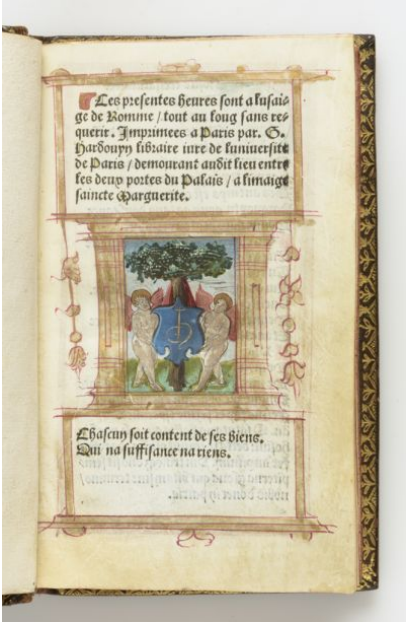 Ces presentes heures sont a lusai-
ge de Romme / tout au long sans re-
querir. Imprimees a Paris par. G.
Hardouyn libraire iure de luniuersite
de Paris / demourant audit lieu entre
les deux portes du Palais / a limaige
saincte Marguerite.
Chascun soit content de ses biens.
Qui na suffisance na riens.